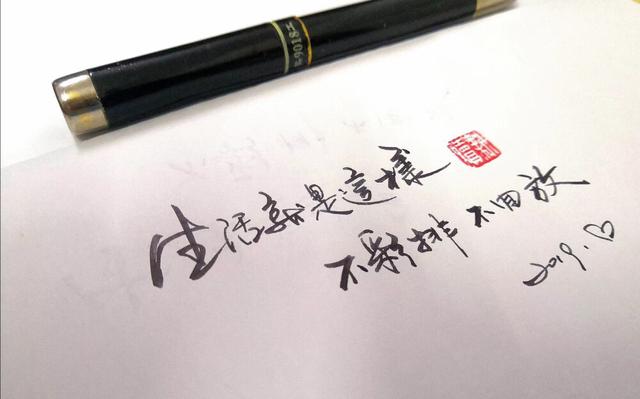 9018
生活就是這樣
不彩排 不回放
2019.♡